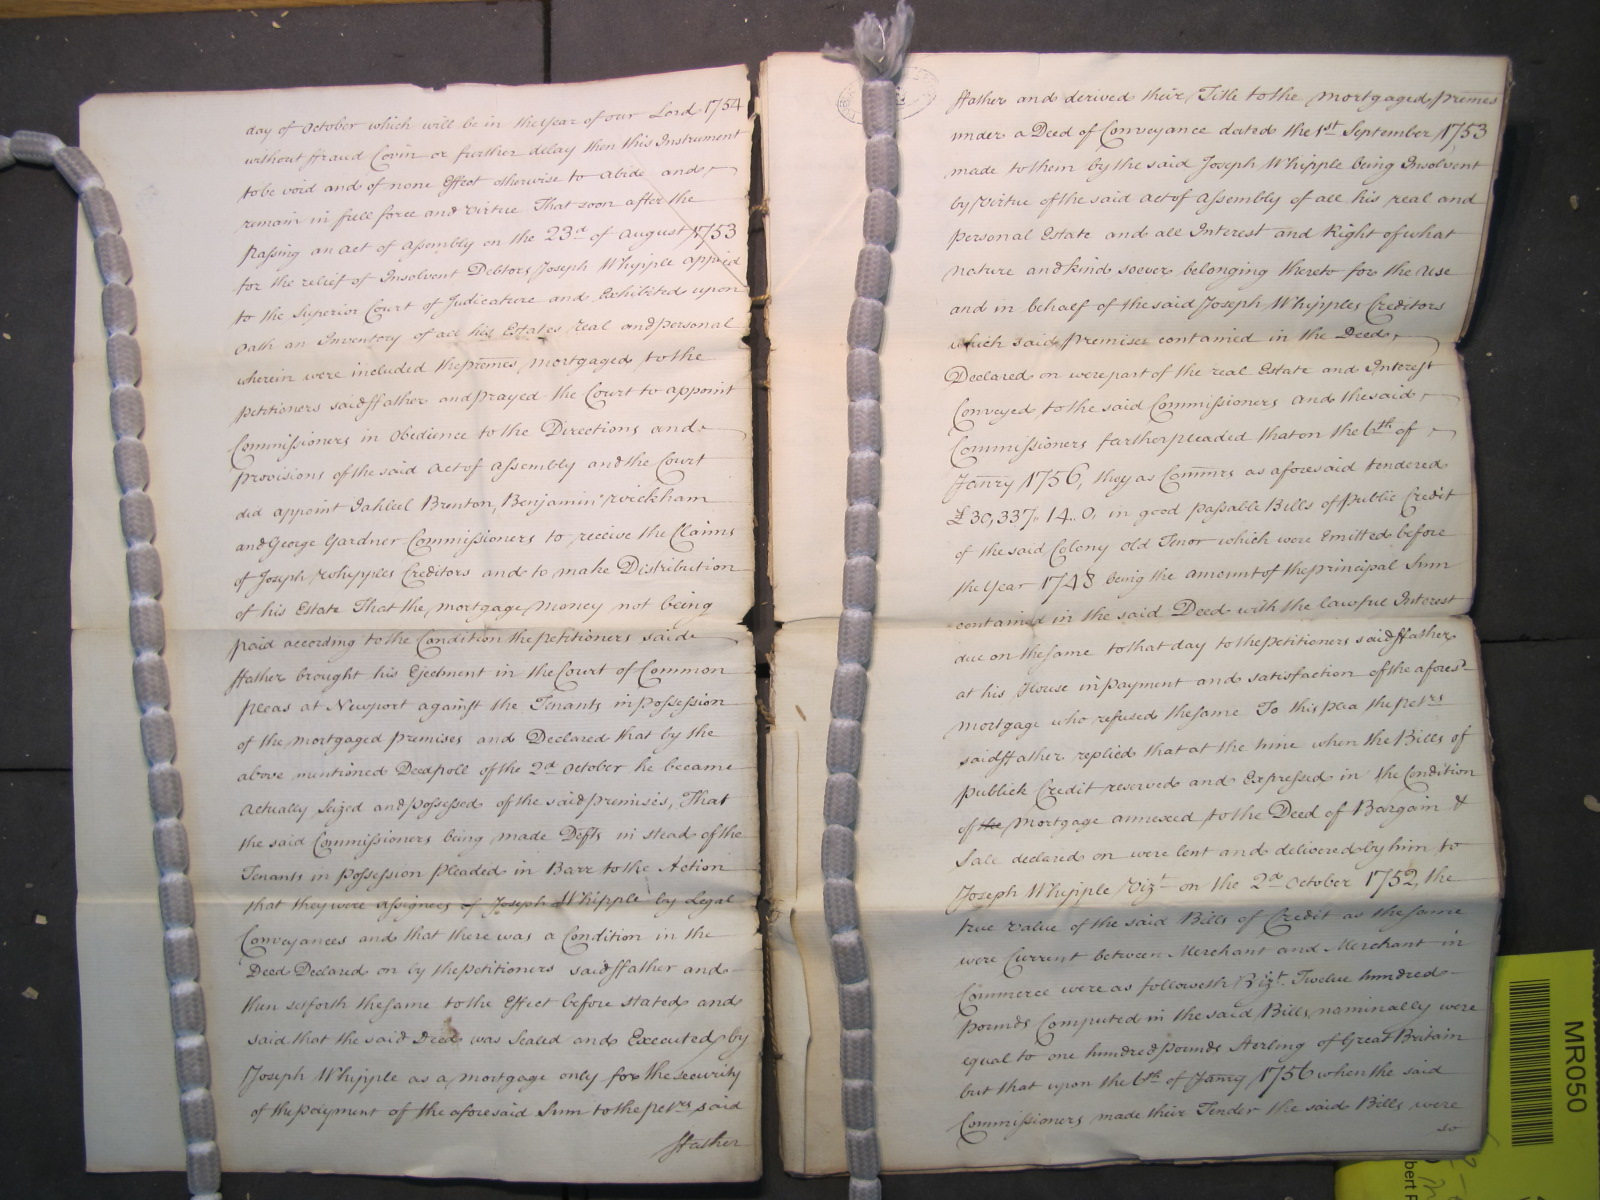 day of October which will be in the Year of our Lord 1754
without ffraud Covin or further delay then this Instrument
to be void and of none Effect otherwise to abide and
remain in full force and virtue That soon after the
passing an Act of Assembly on the 23d of August 1753
for the relief of Insolvent Debtors Joseph Whipple applied
to the Superior Court of Judicature and Exhibited upon
Oath an Inventory of all his Estates real and personal
wherein were included the premes mortgaged to the
petitioners said ffather and prayed the Court to appoint
Commissioners in Obedience to the Directions and
provisions of the said Act of Assembly and the Court
did appoint Jahleel Brenton, Benjamin Wickham
and George Gardner Commissioners to receive the Claims
of Joseph Whipples Creditors and to make Distribution
of his Estate That the mortgage money not being
paid according to the Condition the petitioners said
ffather brought his Ejectment in the Court of Common
pleas at Newport against the Tenants in possession
of the mortgaged premises and Declared that by the
above mentioned Deedpoll of the 2d October he became
actually Seized and possessed of the said premises, That
the said Commissioners being made Defts in stead of the
Tenants in possession pleaded in Barr to the Action
that they were assignees of Joseph Whipple by Legal
Conveyances and that there was a Condition in the
Deed Declared on by the petitioners said ffather and
then setforth the same to the Effect before stated and
said that the said Deed was Sealed and Executed by
Joseph Whipple as a mortgage only for the security
of the payment of the aforesaid Sum to the petrs said
ffather
ffather and derived their Title to the mortgaged premes
under a Deed of Conveyance dated the 1st September 1753
made to them by the said Joseph Whipple being Insolvent
by virtue of the said act of Assembly of all his real and
personal Estate and all Interest and Right of what
nature and kind soever belonging thereto for the use
and in behalf of the said Joseph Whipples Creditors
which said premises contained in the Deed
Declared on were part of the real Estate and Interest
Conveyed to the said Commissioners and the said
Commissioners farther pleaded that on the 6th of
Janry 1756, they as Commrs as aforesaid tendered
£30,337,, 14,, 0, in good passable Bills of public Credit
of the said Colony Old Tenor which were Emitted before
the Year 1748 being the amount of the principal Sum
contained in the said Deed with the lawful Interest
due on the same to that day to the petitioners said ffather
at his House in payment and satisfaction of the aforesd
mortgage who refused the same To this plea the petrs
said ffather replied that at the time when the Bills of
publick Credit reserved and Expressed in the Condition
of the Mortgage annexed to the Deed of Bargain &
Sale declared on were lent and delivered by him to
Joseph Whipple Vizt. on the 2d October 1752, the
true value of the said Bills of Credit as the same
were Current between Merchant and Merchant in
Commerce were as followeth Vizt. Twelve hundred
pounds Computed in the said Bills nominally were
equal to one hundred pounds Sterling of Great Britain
but that upon the 6th of Janry 1756 when the said
Commissioners made their Tender the said Bills were
so
MR050